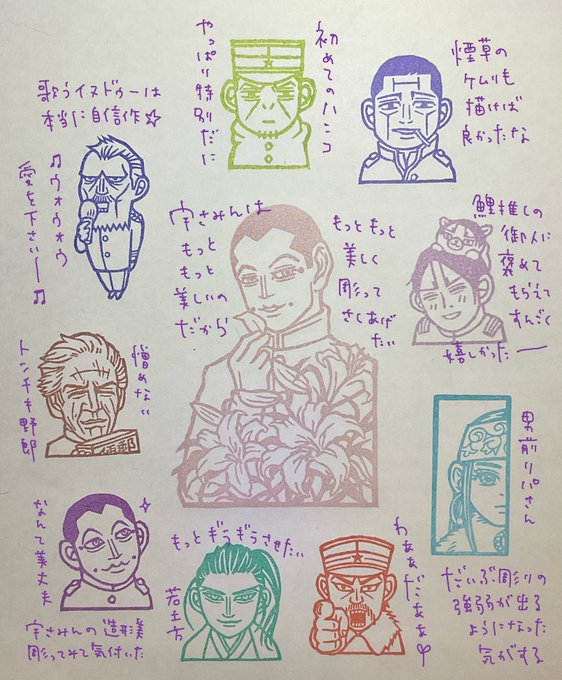 初めてのハンコ
やっぱり特別だに
煙草の
ケムリも
描けば
良かったな
歌うイヌドゥーは
本当に自信作☆
♫ウォウォウ
愛を下さい――♫
宇さみんは
もっと
もっと
美しいの
だから
もっともっと
美しく
彫って
さしあげ
たい
鯉推しの
御人に
褒めて
もらえて
すんごく
嬉しかったー
憎めない
トンチキ野郎
男前リパさん
だいぶ彫りの
強弱が出る
ようになった
気がする
なんて美丈夫
宇さみんの造形美
彫ってみて気付いた
もっとギラギラさせたい
若土方
わぁぁだぁぁぁ